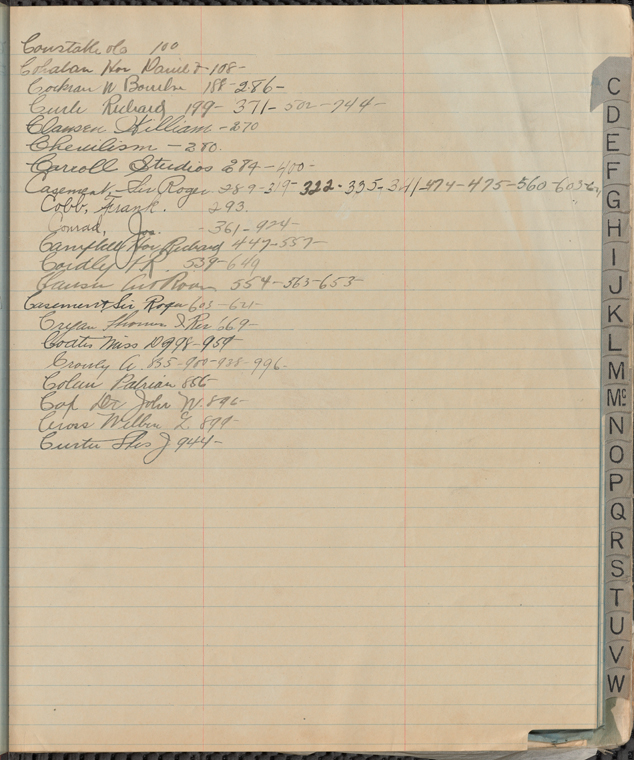 Constable &Co 100
Cohalan Hon Daniel F-108-
Cockran W Bourke 188-286-
Curle Richard 199- 371- 502-744-
Clausen William -270
Chevilism - 280.
Carroll Studios 284-400-
Casement, Sir Roger 289-319- 322-335-341-474-475-560-603-
Cobb, Frank. 293.
Conrad, Jos. -361-924-
Campbell Hon Richard 447-557-
Cordly 539-649
Clausen Art Room 554-563-653-
Casement Sir Roger 603-621-
Cryan Thomas J Rev 669-
Coates Miss D 998-959
Crowly A. 835-980-988-996-
Colum Padriac 886-
Cox Dr John W. 896-
Cross Wilbur L. 899-
Curtis Thos J 944-
C
D
E
F
G
H
I
J
K
L
M
Mc
N
O
P
Q
R
S
T
U
V
W